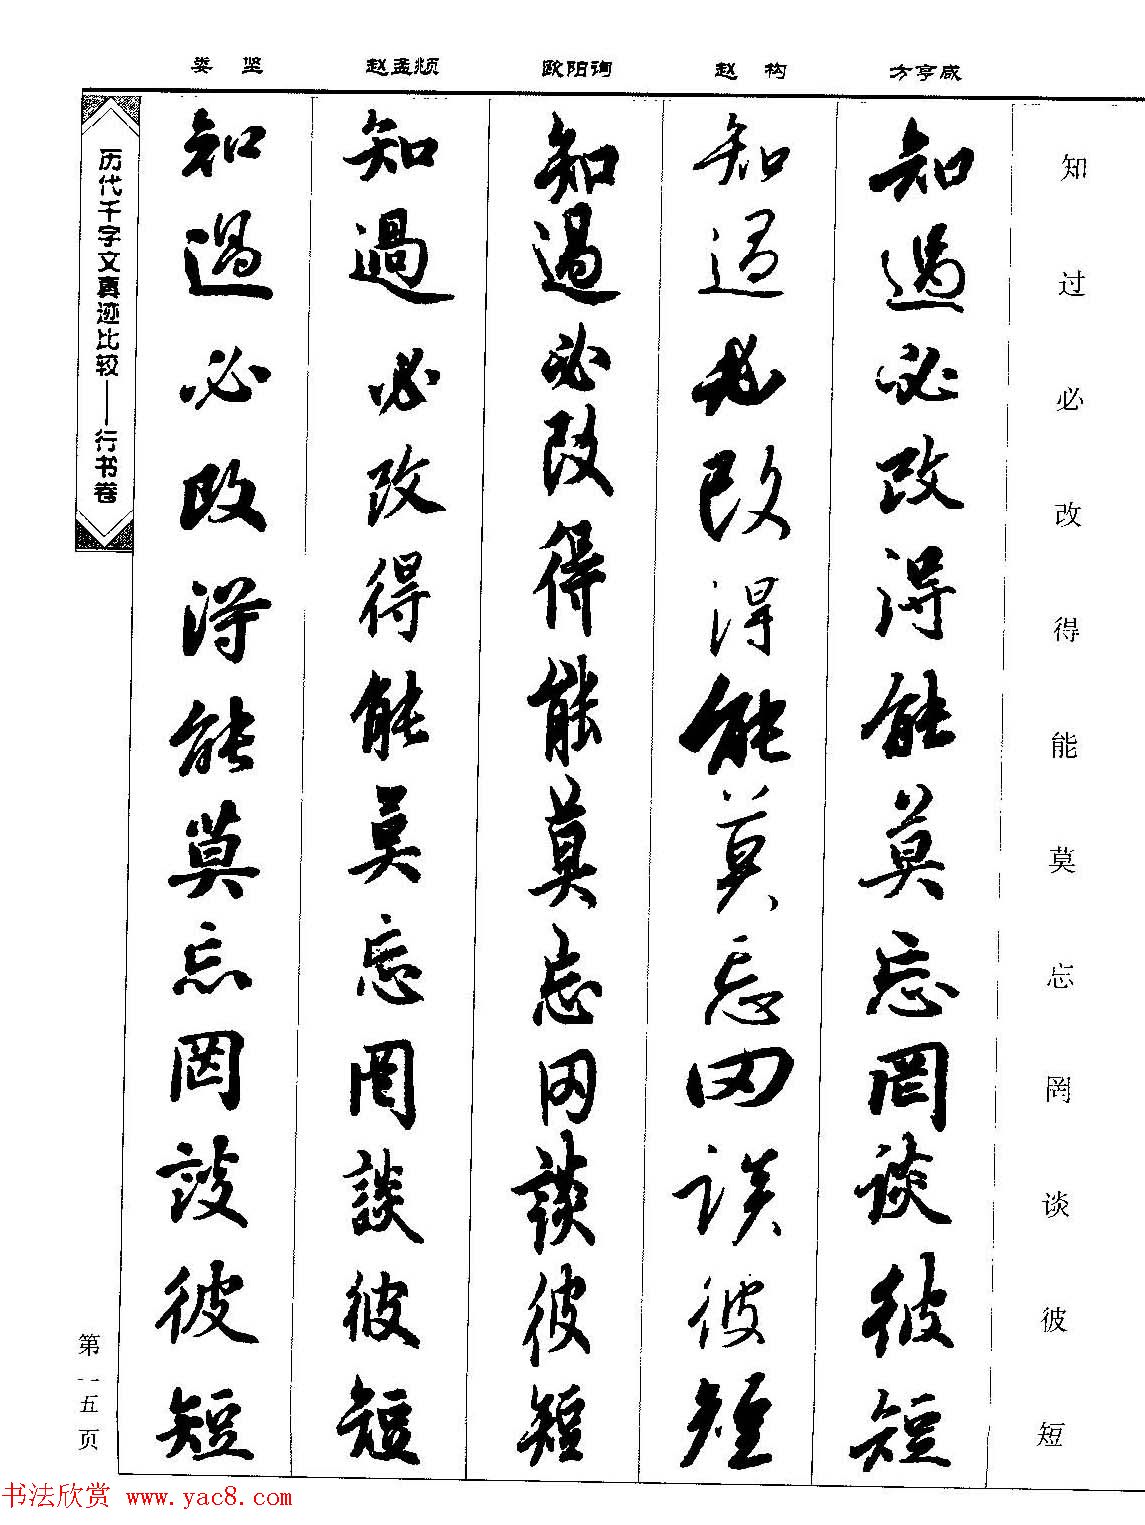 娄坚 赵孟頫 欧阳询 赵构 方亨咸
知过必改得能莫忘罔谈彼短
知過必改得能莫忘罔談彼短
知過必改得能莫忘罔談彼短
知過必改得能莫忘罔談彼短
知過必改得能莫忘罔談彼短
知過必改得能莫忘罔談彼短
历代千字文真迹比较——行书卷
第一五页
书法欣赏 www.yac8.com